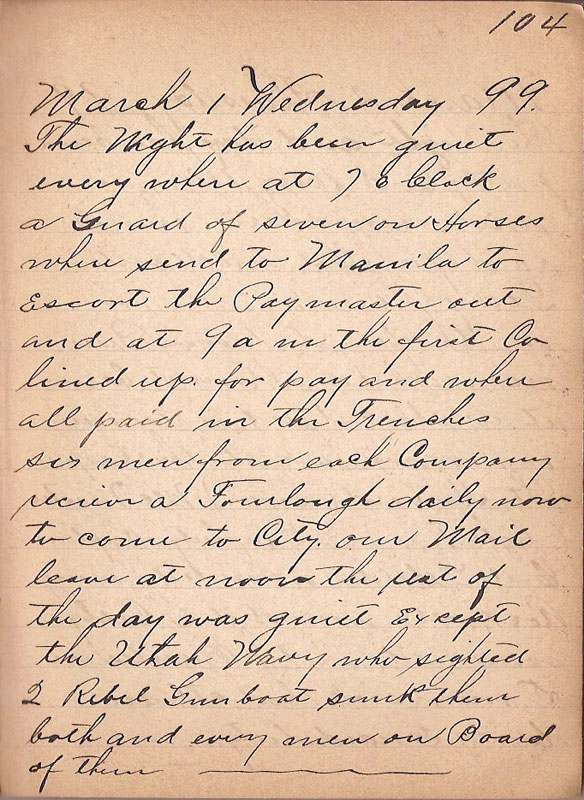 104
March 1 Wednesday 99.
The Night has been quiet
every where at 7 o Clock
a Guard of seven on Horses
where send to Manila to
Escort the Paymaster out
and at 9 a m the first Co
lined up. for pay and where
all paid in the Trenches
six men from each Company
recieve a Fourlough daily now
to come to City. our Mail
leave at noon the rest of
the day was quiet Except
the Utah Navy who sighted
2 Rebel Gunboat sunk them
both and every men on Board
of them